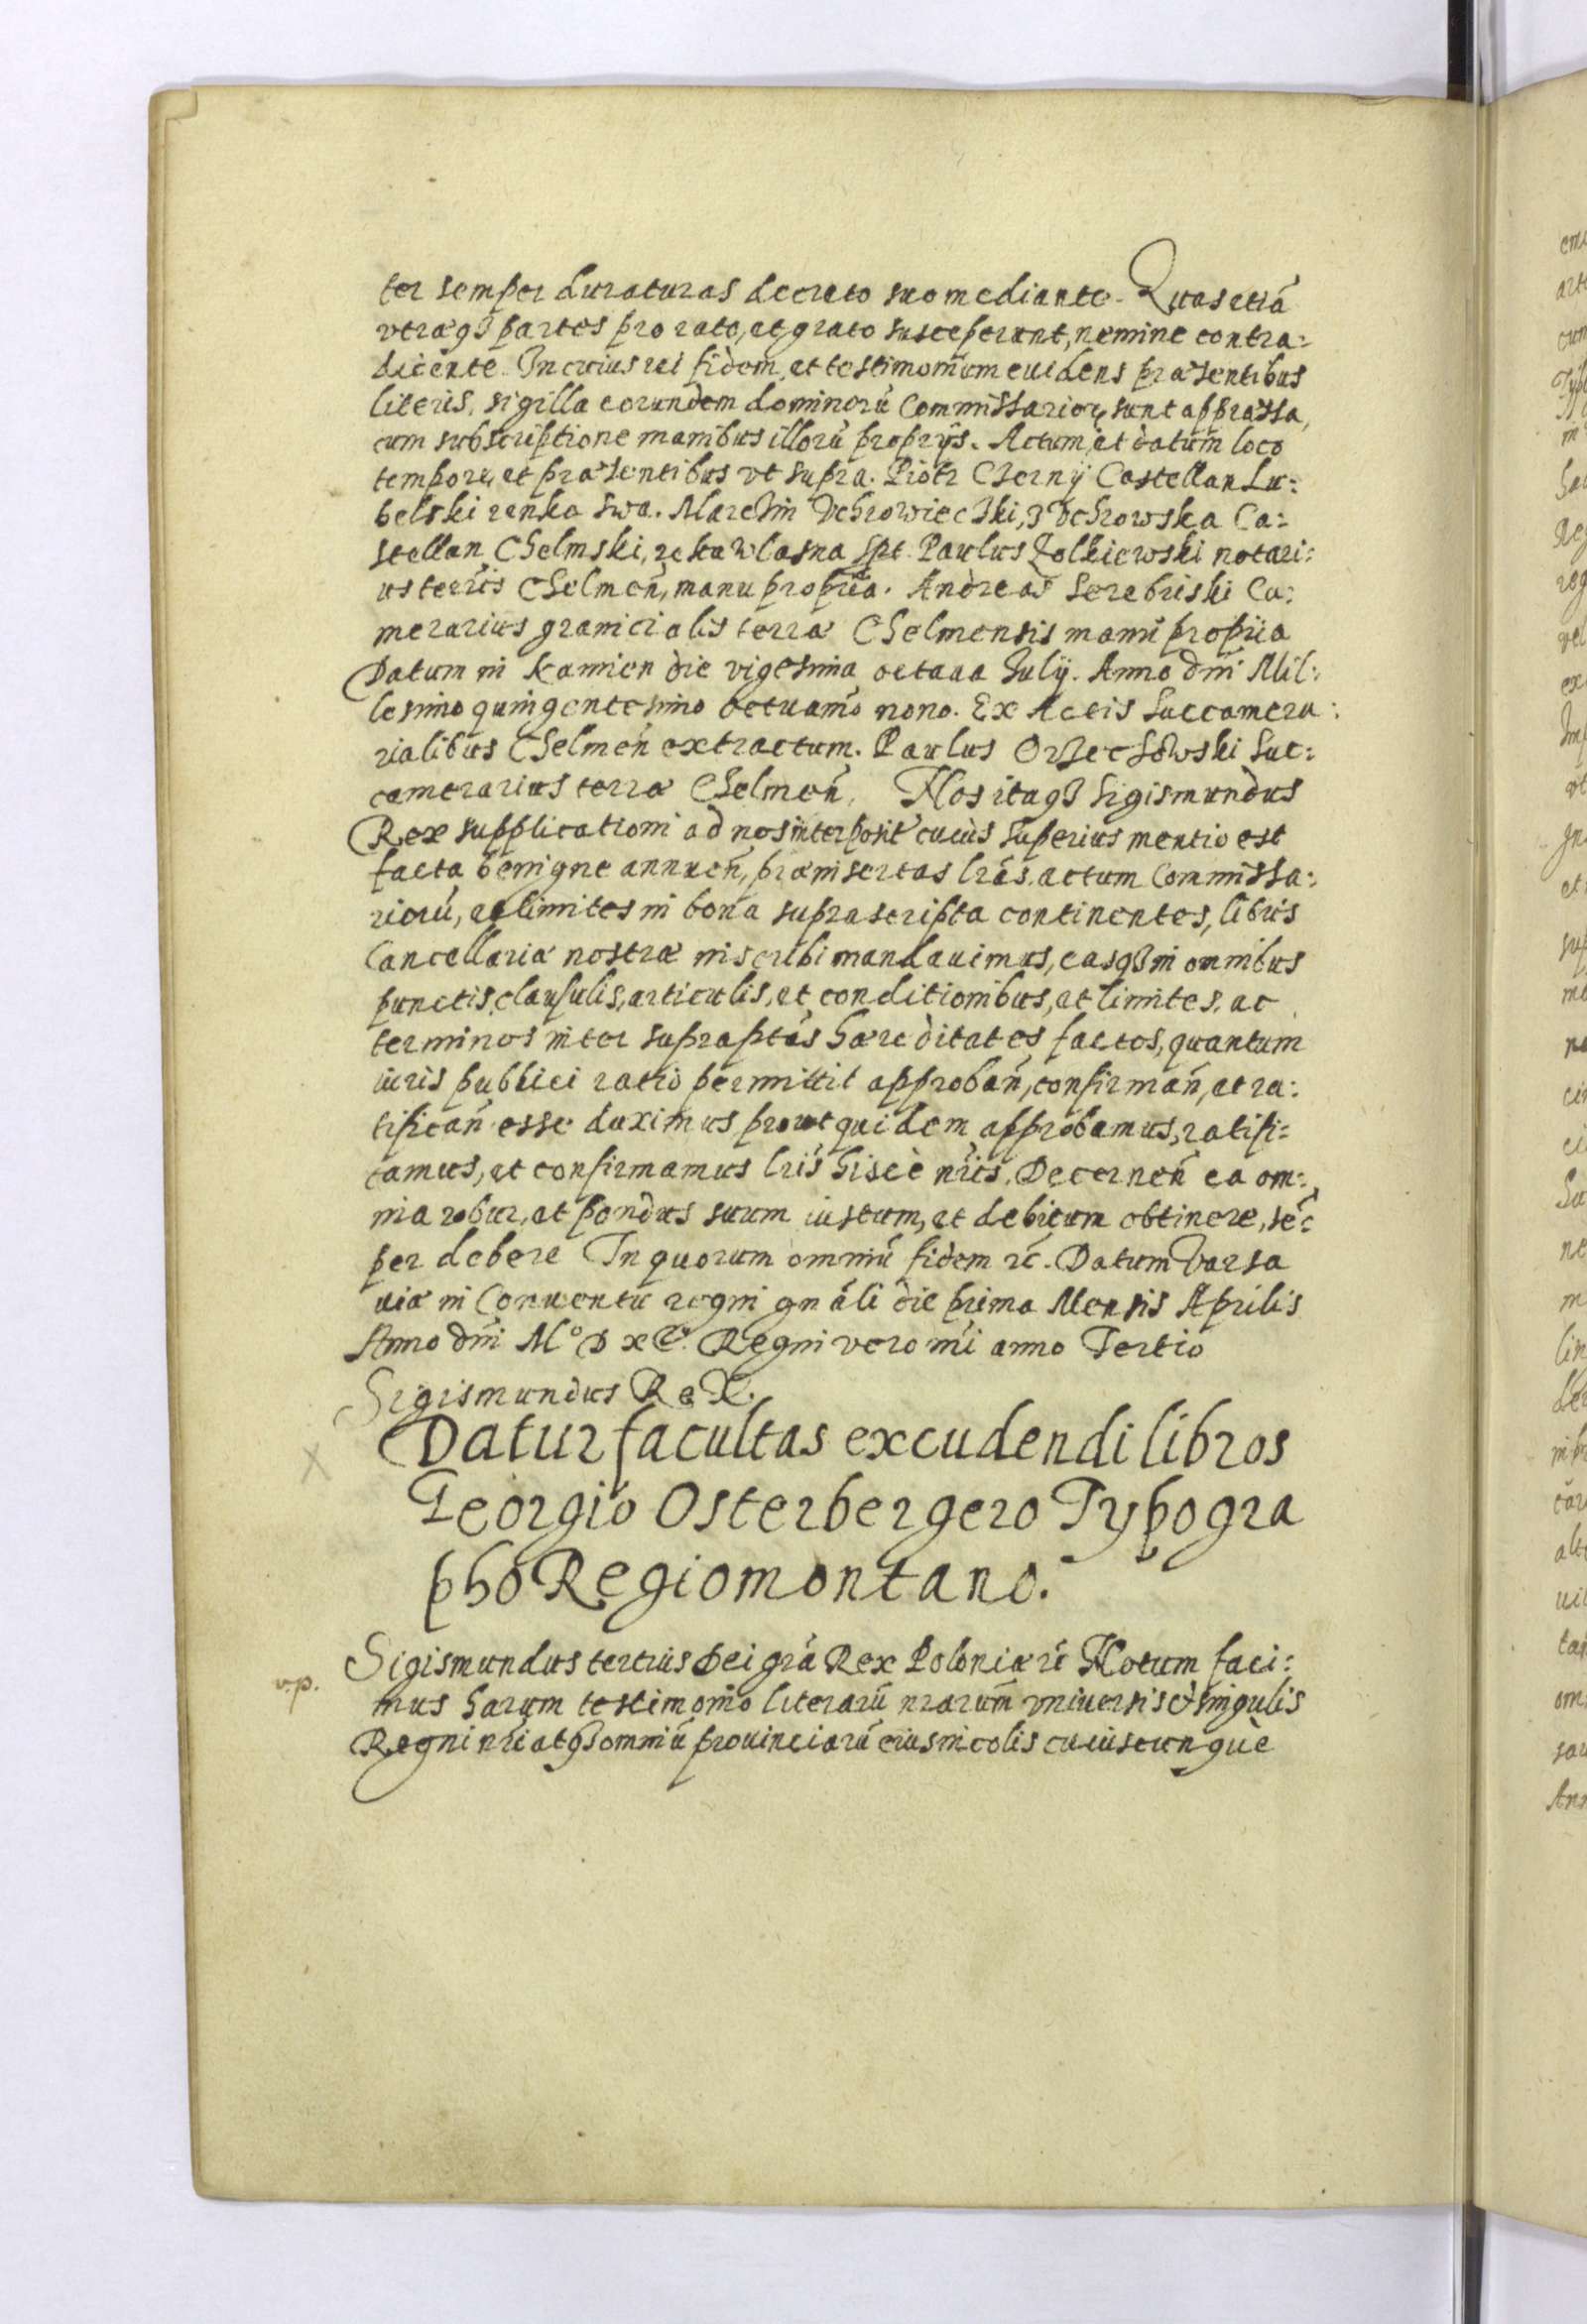 ter semper duraturas decreto suo mediante. Quas etiā
vtræqȝ partes pro rato, et grato susceperunt, nemine contra:
dicente. In cuius rei fidem, et testimonium euidens præsentibus
literis, sigilla eorundem dominorū Commissarioꝝ sunt appræssa,
cum subscriptione manibus illorū proprijs. Actum et datum loco
tempore, et præsentibus vt supra. Piotr Czernÿ Castellan Lu:
belski ranka swa. Marczin Vchrowieczki, z Vchrowska Ca:
stellan Chelmski, reka wlasna spt. Paulus Zolkiewski notari:
us terrɇs Chelmeñ, manu propria. Andreas Serebriski Ca:
merarius granicialis terræ Chelmensis manu propria
Datum in Kamien die vigesima octaua Julij. Anno dñi Mil:
lesimo quingentesimo octuamo nono. Ex Actis Succamera:
rialibus Chelmeñ extractum. Paulus Orzechowski Suc:
camerarius terræ Chelmeñ. Nos itaqȝ Sigismundus
Rex supplicationi ad nos interposit cuius superius mentio est
facta benigne annueñ, præinsertas lrās. actum Commissa:
riorū, ac limites in bona suprascripta continentes, libris
Cancellariæ nostræ inscribi mandauimus, easqȝ in omnibus
punctis, clausulis, articulis, et conditionibus, et limites, ac
terminos inter supraptās hæreditates factos, quantum
iuris publici ratio permittit approbañ, confirmañ, et ra:
tificañ esse duximus prout quidem approbamus, ratifi:
camus, et confirmamus lris hisce nris. Decerneñ ea om:
nia robur, et pondus suum iustum, et debitum obtinere, sē:
per debere In quorum omniū fidem rc̄. Datum Varsa
uiæ in Conuentu regni gnāli die prima Mensis Aprilis
Anno dñi M° D xC. Regni vero nr̄i anno Tertio
Sigismundus ReX.
Datur facultas excudendi libros
Georgio Osterbergero Typogra
pho Regiomontano.
Sigismundus tertius Dei grā Rex Poloniæ rc̄ Notum faci:
v.p.
mus harum testimonio literarū nrarum vniuersis et singulis
Regni nri atqȝ omniū prouinciarū eius incolis cuiuscunque